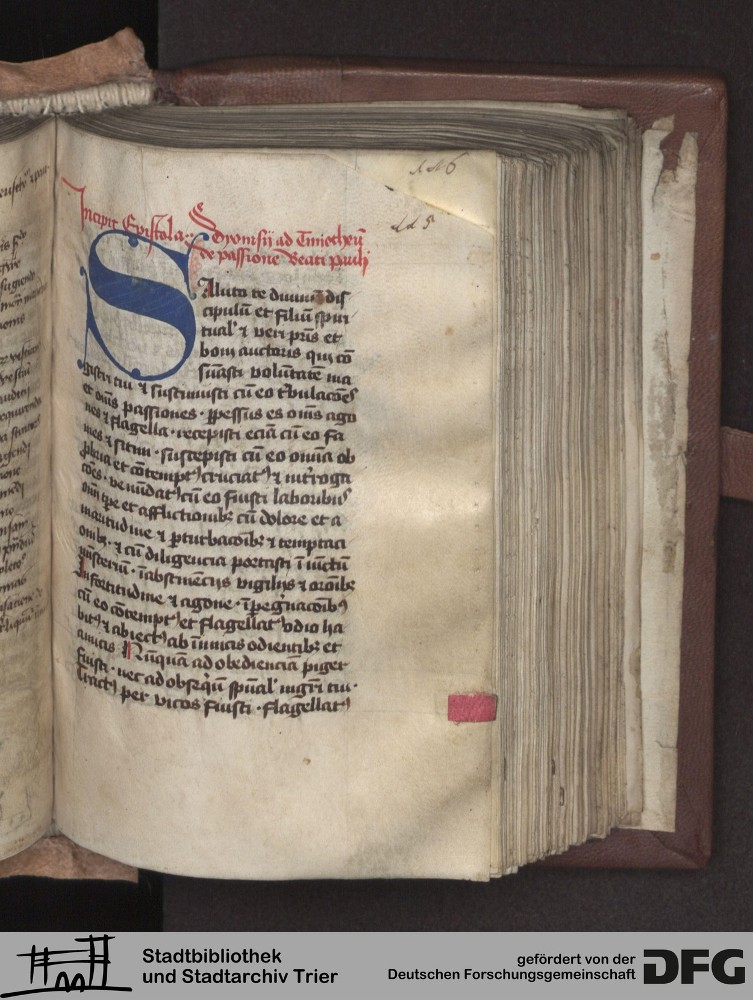 116
115
Incipit Epistola
Dyonisij ad Timotheū
de passione Beati pauli
Saluto te diuinū dis
cipulū et filiū spiri
tualˀ ⁊ veri pr̄is et
boni auctoris qui cō
suasti volūtatē ma
gistri tui ⁊ sustinuisti cū eo tˀbulacōes
et om̄s passiones · ꝑpessus es om̄s ago
nes ⁊ flagella · recepisti eciā cū eo fa
mes ⁊ sitim · suscepisti cū eo omnia ob
ꝓbria et cōtemptꝰ cruciatꝰ ⁊ int̄roga
cōes · venūdatꝰ cū eo fuisti laboribus
et afflictionibꝫ cū dolore et a
maritudine ⁊ ꝑturbacōibꝫ ⁊ temptaci
onibꝫ · ⁊ cū diligencia portasti īiūctū
misteriū · ī abstinencijs vigilijs ⁊ orōibꝫ
In fortitudine ⁊ agone · ī pegˀnacōibꝫ
cū eo cōtemptꝰ et flagellatꝰ odio ha
bitꝰ ⁊ abiectꝰ ab inimicis odientibꝫ et
amicis Nūquā ad obedienciā piger
fuisti · nec ad obseq̄ū sp̄ualˀ mgr̄i tui ·
tractꝰ per vicos fuisti · flagellatꝰ
Stadtbibliothek
und Stadtarchiv Trier
gefördert von der
Deutschen Forschungsgemeinschaft
DFG